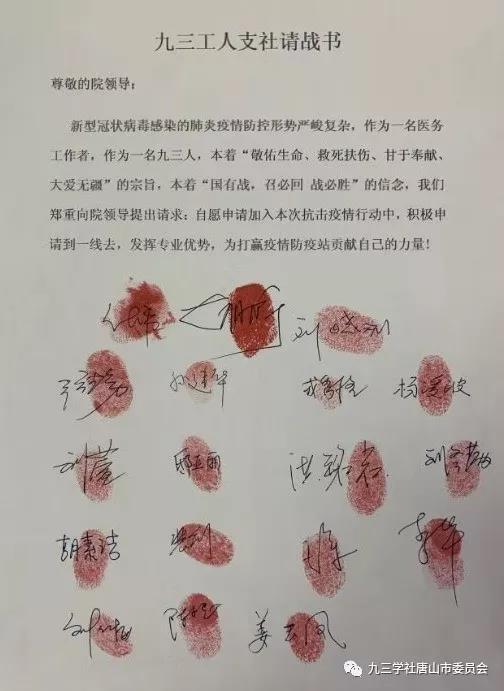 九三工人支社请战书
尊敬的院领导:
新型冠状病毒感染的肺炎疫情防控形势严峻复杂，作为一名医务
工作者，作为一名九三人，本着“敬佑生命、救死扶伤、甘于奉献、
大爱无疆”的宗旨，本着“国有战，召必回 战必胜”的信念，我们
郑重向院领导提出请求: 自愿申请加入本次抗击疫情行动中，积极申
请到一线去，发挥专业优势，为打赢疫情防疫站贡献自己的力量!
孙建华 杨爱波
刘萱 邢亚丽
胡素洁 李华
姜云凤
九三学社唐山市委员会